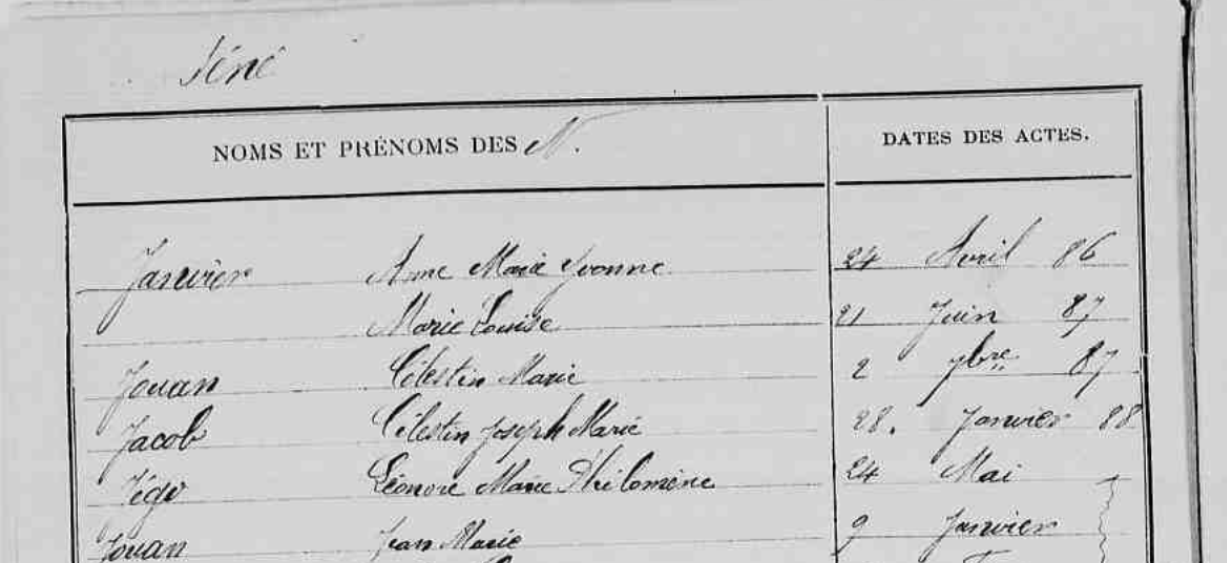 Séné
NOMS ET PRÉNOMS DES N. DATES DES ACTES.
Janvier Anne Marie Yvonne 24 Avril 86
Marie Louise 21 Juin 87
Jouan Célestin Marie 2 7bre 87
Jacob Célestin Joseph Marie 28. Janvier 88
Jégo Léonore Marie Philomène 24 Mai
Jouan Jean Marie 9 Janvier